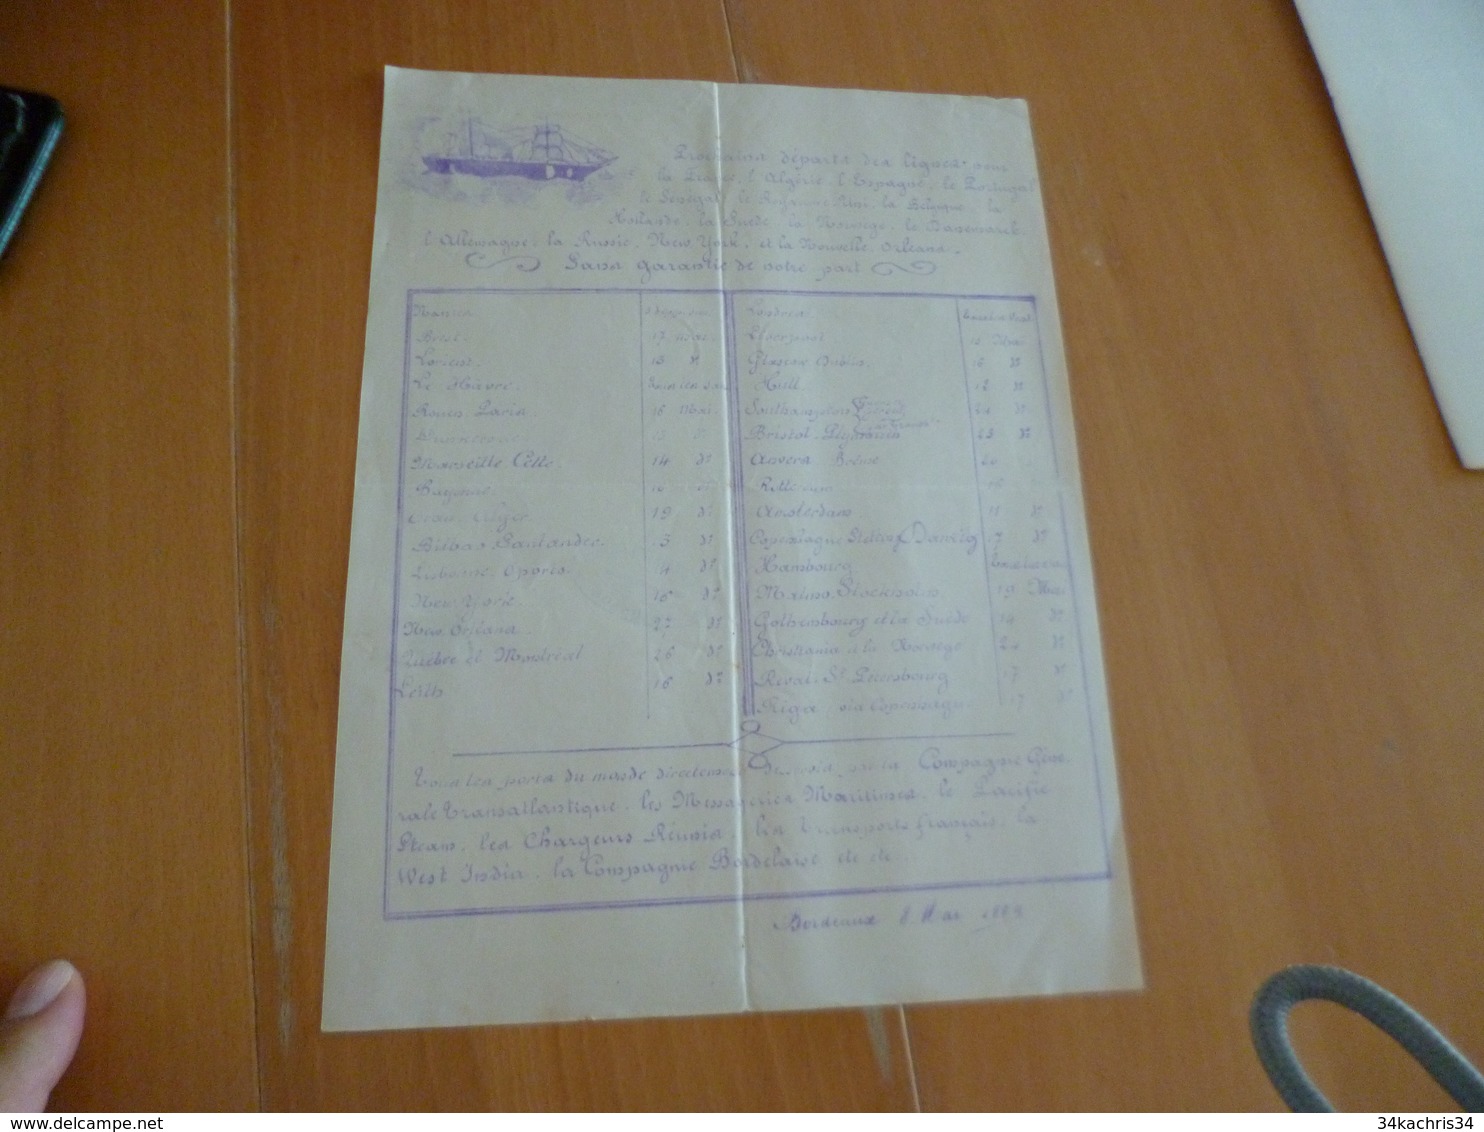 Prochains départs des lignes pour
la France, l'Algérie, l'Espagne, le Portugal
le Sénégal, le Royaume Uni, la Belgique, la
Hollande, la Suède, la Norwège, le Danemarck
l'Allemagne, la Russie, New York, et la Nouvelle Orléans.
Sans garantie de notre part
Nantes
Brest 17
Lorient 13 do
Le Havre
Rouen Paris 16 Mai
Dunkerque
Marseille Cette 14 do
Bayonne
Oran Alger 19 do
Bilbao Santander 13 do
Lisbonne Oporto 14 do
New York 16 do
New Orléans 27 do
Québec et Montréal 26 do
Leith 16 do
Londres
Liverpool
Glascow Dublin 16 do
Hull 12 do
Southampton
Bristol Plymouth 23 do
Anvers Brême 20
Rotterdam
Amsterdam do
Copenhague Stettin Dantzig 17 do
Hambourg
Malmo Stockholm 19 Mai
Gothembourg et la Suède 14 do
Christiania et la Norwège 24 do
Reval St Pétersbourg 17 do
Riga via Copenhague 17 do
Tous les ports du monde directement desservis par la Compagnie Géné
rale Transatlantique, les Messageries Maritimes, le Pacific
Steam, les Chargeurs Réunis, les Transports français, la
West India, la Compagnie Bordelaise etc etc...
Bordeaux 8 Mai
34kachris34